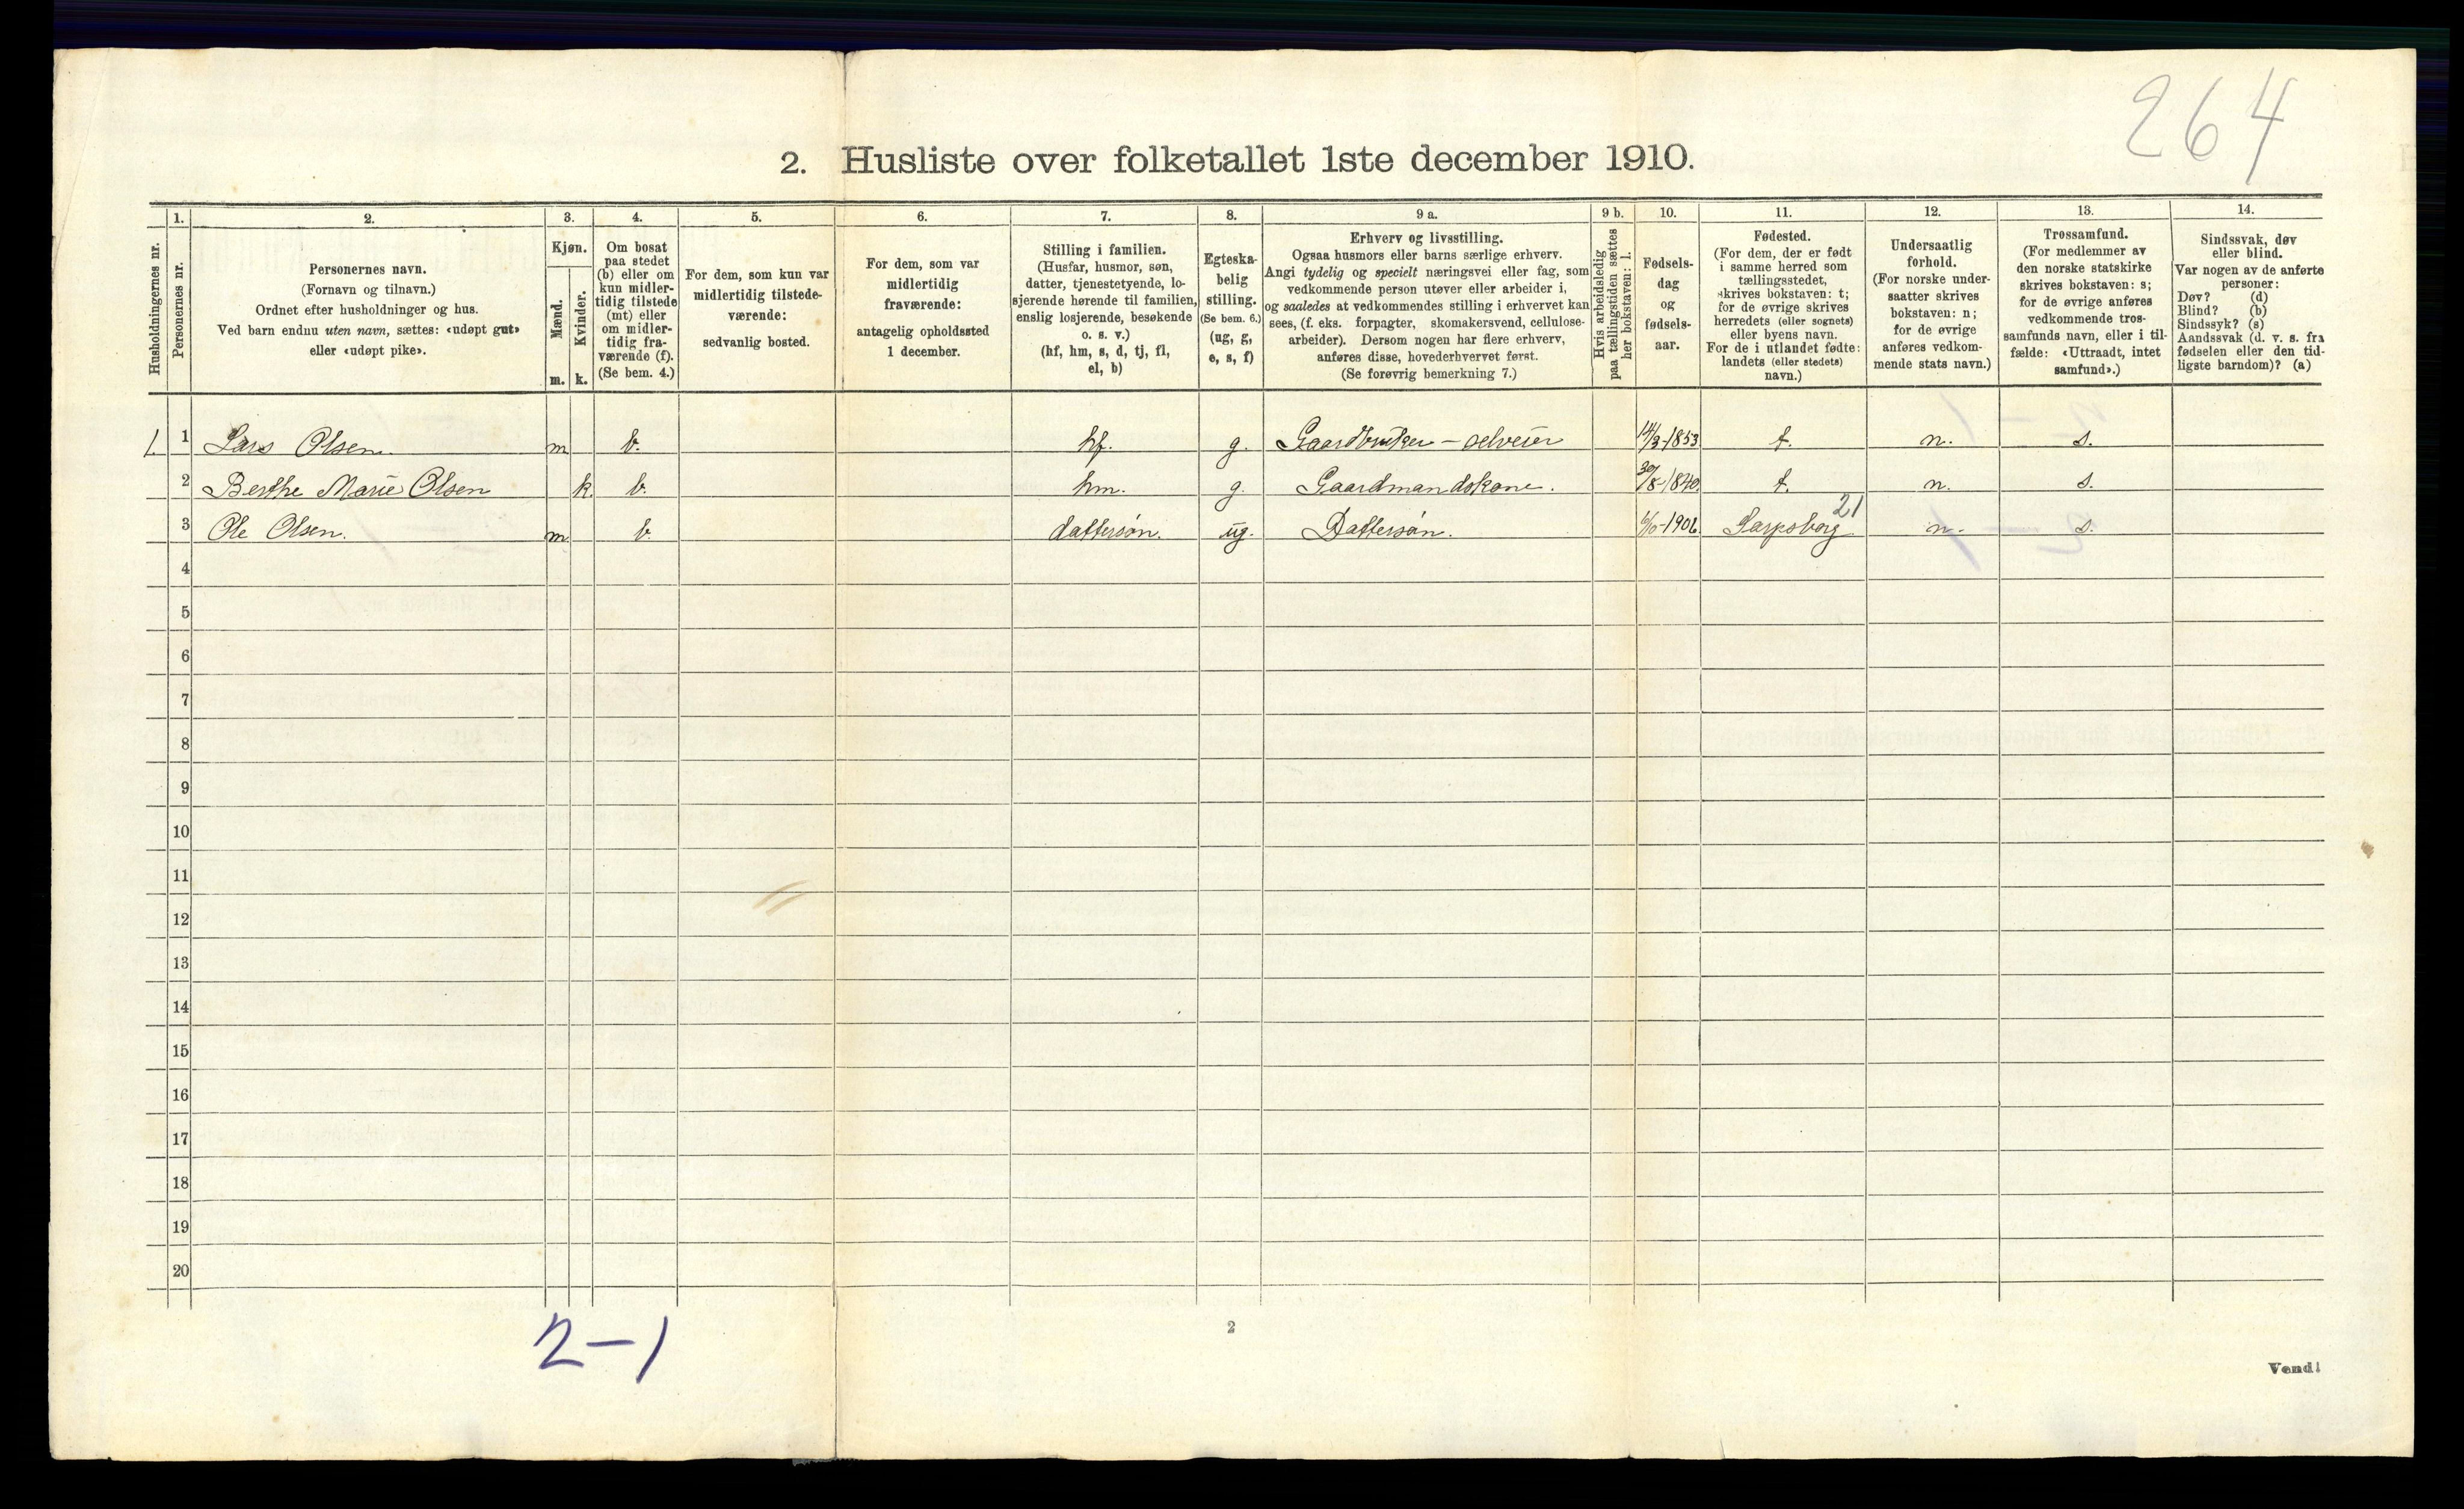 264
2. Husliste over folketallet 1ste december 1910.
Husholdningernes nr.
1.
Personernes nr.
2.
Personernes navn.
(Fornavn og tilnavn.)
Ordnet efter husholdninger og hus.
Ved barn endnu uten navn, sættes: «udøpt gut»
eller «udøpt pike».
3.
Kjøn.
Mænd.
Kvinder.
m. k.
4.
Om bosat
paa stedet
(b) eller om
kun midler-
tidig tilstede
(mt) eller
om midler-
tidig fra-
værende (f).
(Se bem. 4.)
5.
For dem, som kun var
midlertidig tilstede-
værende:
sedvanlig bosted.
6.
For dem, som var
midlertidig
fraværende:
antagelig opholdssted
1 december.
7.
Stilling i familien.
(Husfar, husmor, søn,
datter, tjenestetyende, lo-
sjerende hørende til familien,
enslig losjerende, besøkende
o. s. v.)
(hf, hm, s, d, tj, fl,
el, b)
8.
Egteska-
belig
stilling.
(Se bem. 6.)
(ug, g,
e, s, f)
9 a.
Erhverv og livsstilling.
Ogsaa husmors eller barns særlige erhverv.
Angi tydelig og specielt næringsvei eller fag, som
vedkommende person utøver eller arbeider i,
og saaledes at vedkommendes stilling i erhvervet kan
sees, (f. eks. forpagter, skomakersvend, cellulose-
arbeider). Dersom nogen har flere erhverv,
anføres disse, hovederhvervet først.
(Se forøvrig bemerkning 7.)
9 b.
Hvis arbeidsledig
paa tællingstiden sættes
her bokstaven: l.
10.
Fødsels-
dag
og
fødsels-
aar.
11.
Fødested.
(For dem, der er født
i samme herred som
tællingsstedet,
skrives bokstaven: t;
for de øvrige skrives
herredets (eller sognets)
eller byens navn.
For de i utlandet fødte:
landets (eller stedets)
navn.)
12.
Undersaatlig
forhold.
(For norske under-
saatter skrives
bokstaven: n;
for de øvrige
anføres vedkom-
mende stats navn.)
13.
Trossamfund.
(For medlemmer av
den norske statskirke
skrives bokstaven: s;
for de øvrige anføres
vedkommende tros-
samfunds navn, eller i til-
fælde: «Uttraadt, intet
samfund».)
14.
Sindssvak, døv
eller blind.
Var nogen av de anførte
personer:
Døv? (d)
Blind? (b)
Sindssyk? (s)
Aandssvak (d. v. s. fra
fødselen eller den tid-
ligste barndom)? (a)
1. 1 Lars Olsen. m b. hf. g. Gaardbruker - selveier 14/3-1853 t. n. s.
2 Berthe Marie Olsen k. b. hm. g. Gaardmandskone. 30/8-1840. t. n. s.
21
3 Ole Olsen. m b. dattersøn. ug. Dattersøn. -1906. Sarpsborg n. s.
4
5
6
7
8
9
10
11
12
13
14
15
16
17
18
19
20
2-1
2
Vend!